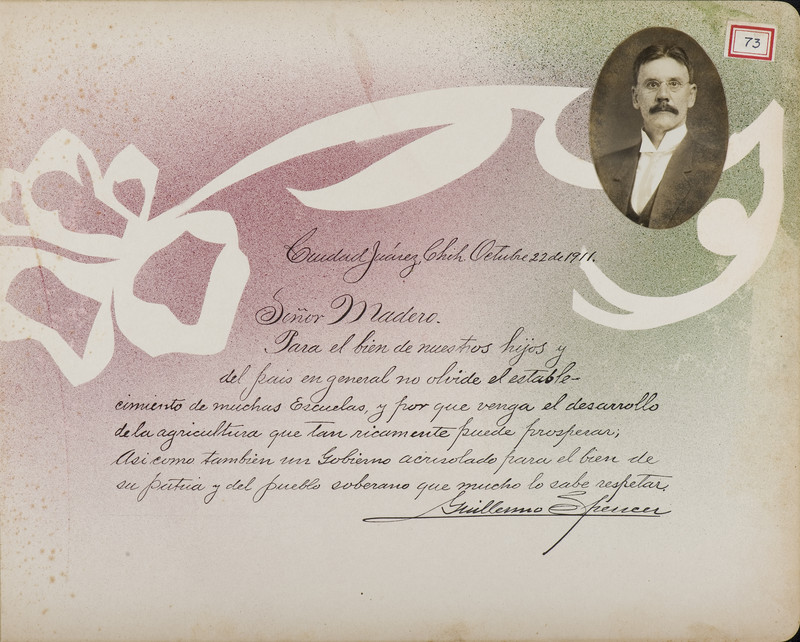 73
Ciudad Juárez, Chih. Octubre 22 de 1911.
Señor Madero.
Para el bien de nuestros hijos y
del país en general no olvide el estable-
cimiento de muchas Escuelas, y por que venga el desarrollo
de la agricultura que tan ricamente puede prosperar;
Asi como tambien un Gobierno acrisolado para el bien de
su patria y del pueblo soberano que mucho lo sabe respetar.
Guillermo Spencer